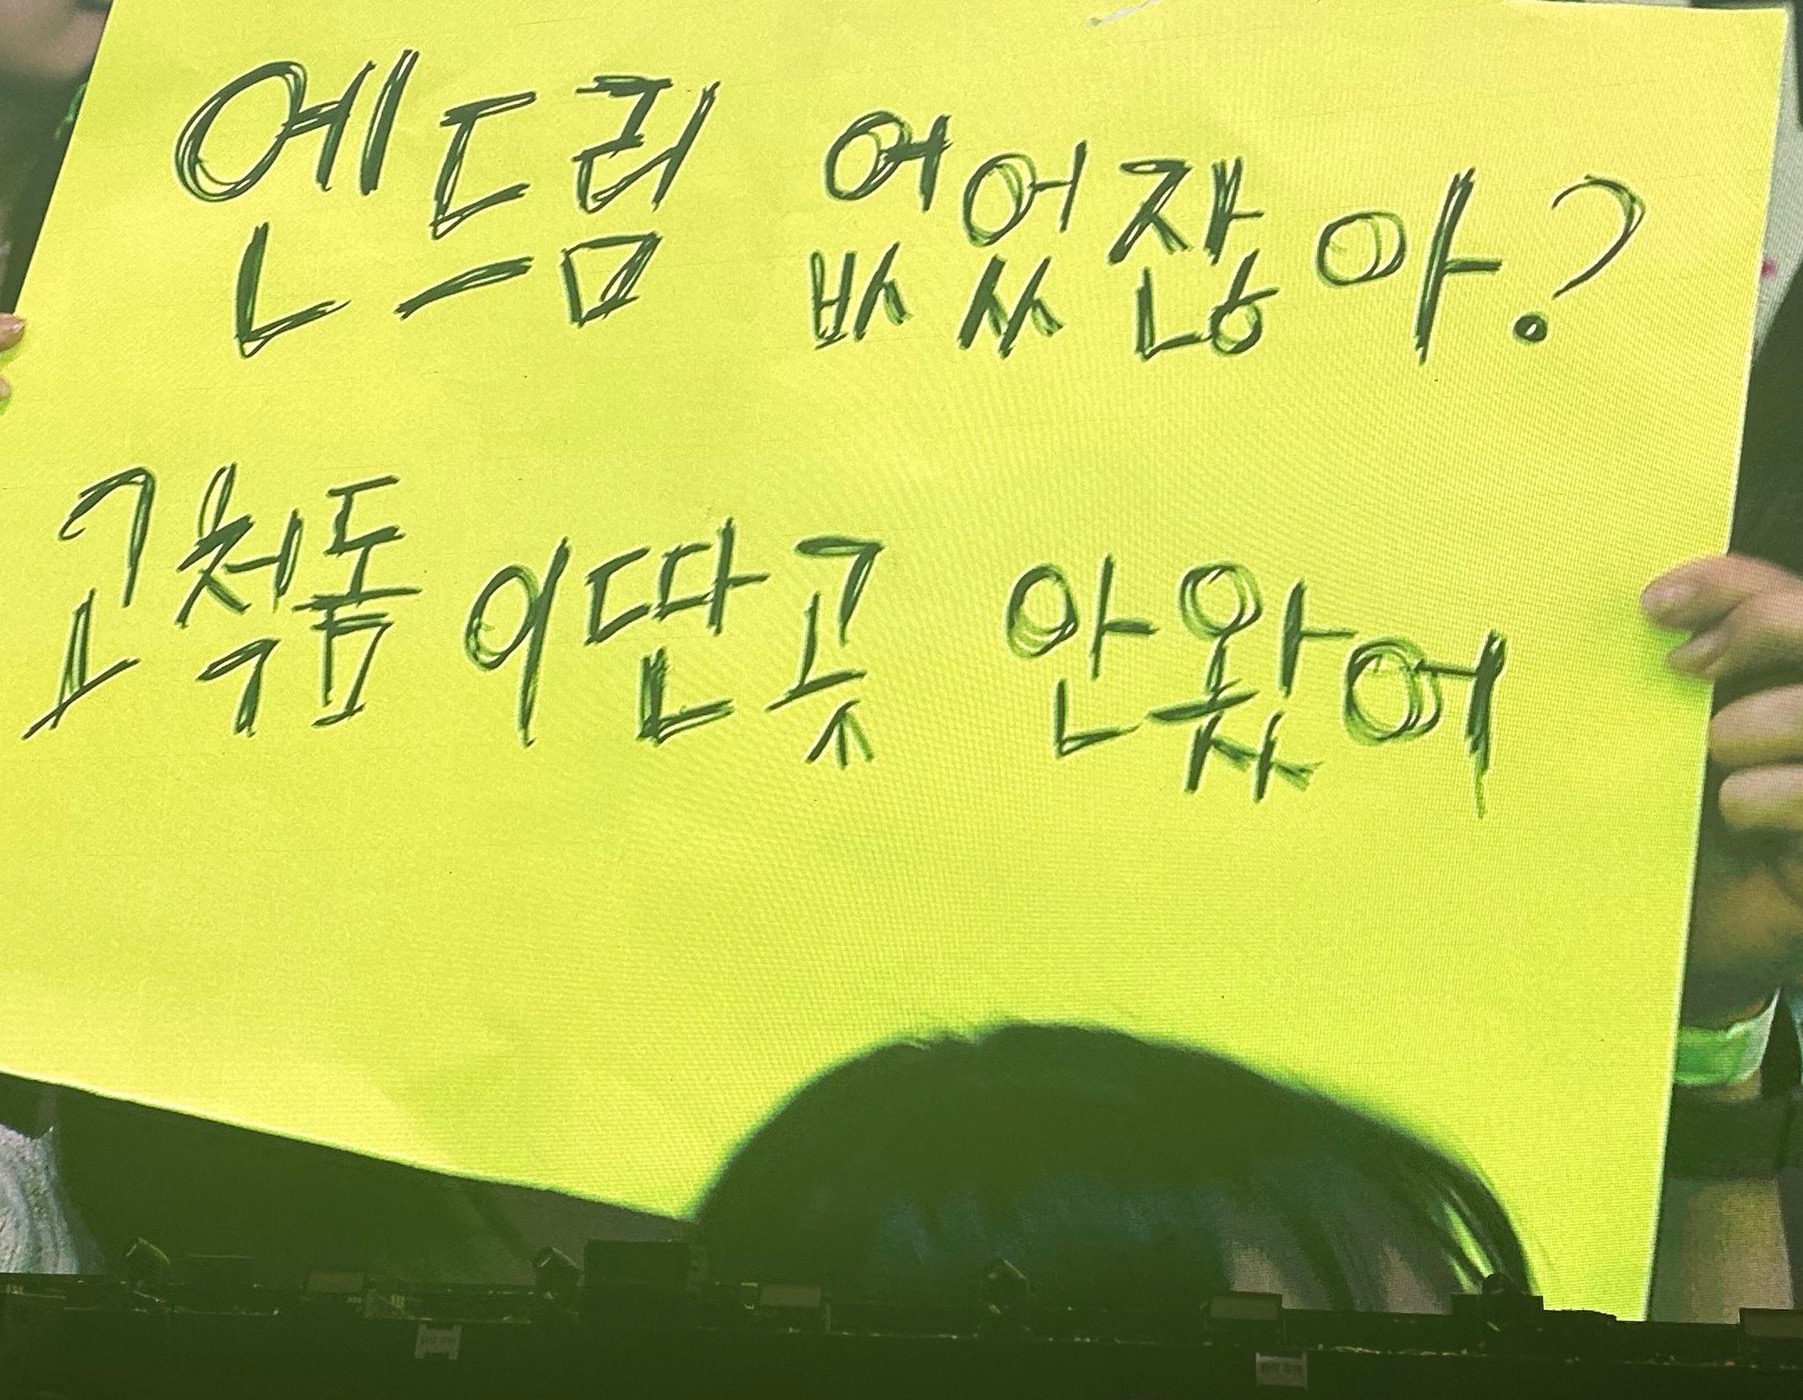 엔드림 없었잖아?
고척돔 이딴곳 안왔어